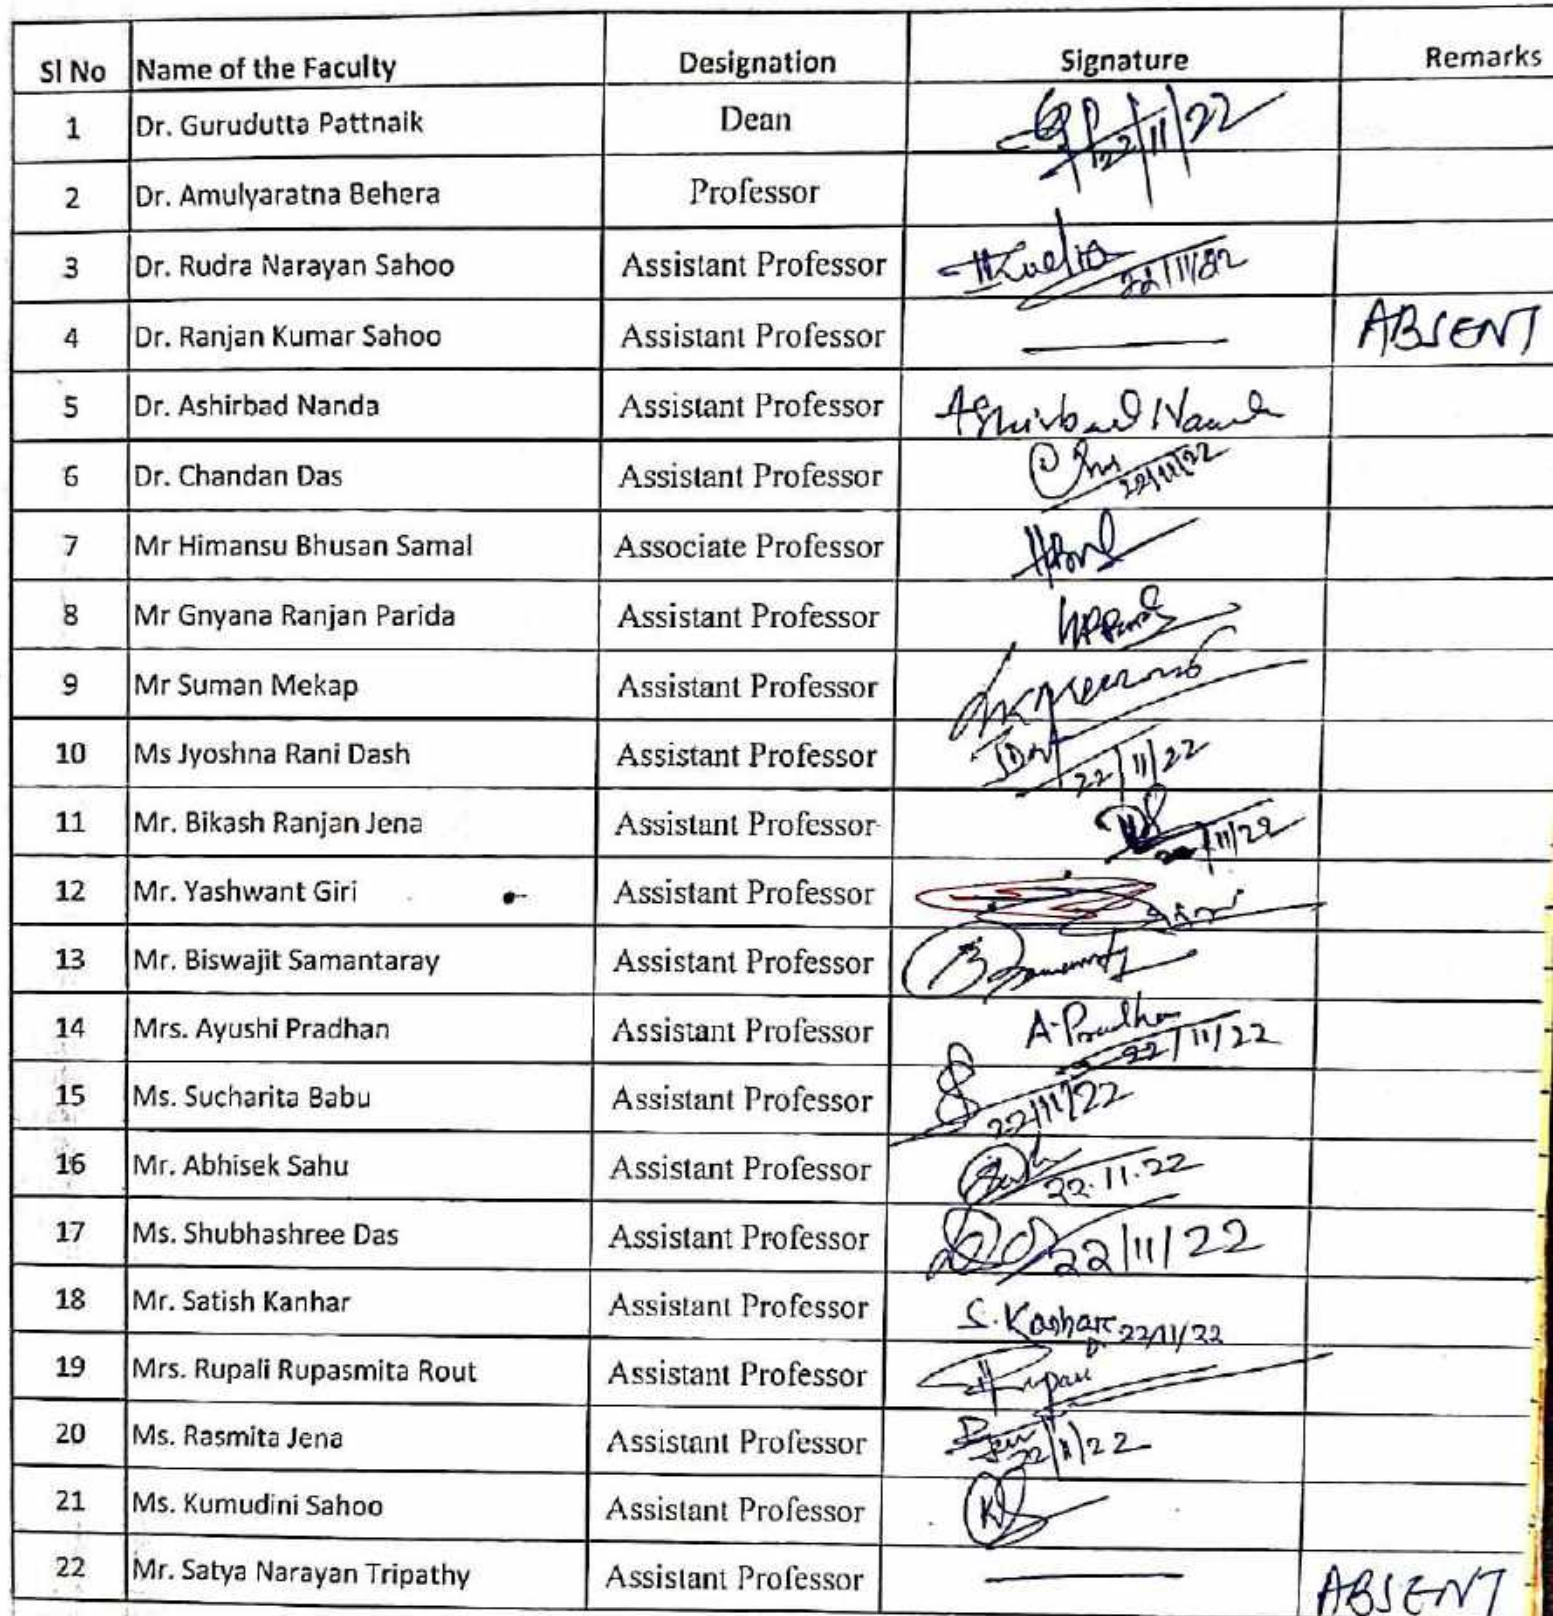 Sl No Name of the Faculty Designation Signature Remarks
1 Dr. Gurudutta Pattnaik Dean 22/11/22
2 Dr. Amulyaratna Behera Professor
3 Dr. Rudra Narayan Sahoo Assistant Professor 22/11/22
4 Dr. Ranjan Kumar Sahoo Assistant Professor — ABSENT
5 Dr. Ashirbad Nanda Assistant Professor Ashirbad Nanda
6 Dr. Chandan Das Assistant Professor 22/11/22
7 Mr Himansu Bhusan Samal Associate Professor
8 Mr Gnyana Ranjan Parida Assistant Professor
9 Mr Suman Mekap Assistant Professor
10 Ms Jyoshna Rani Dash Assistant Professor 22/11/22
11 Mr. Bikash Ranjan Jena Assistant Professor 22/11/22
12 Mr. Yashwant Giri Assistant Professor
13 Mr. Biswajit Samantaray Assistant Professor
14 Mrs. Ayushi Pradhan Assistant Professor A. Pradhan 22/11/22
15 Ms. Sucharita Babu Assistant Professor 22/11/22
16 Mr. Abhisek Sahu Assistant Professor 22.11.22
17 Ms. Shubhashree Das Assistant Professor 22/11/22
18 Mr. Satish Kanhar Assistant Professor S. Kanhar 22/11/22
19 Mrs. Rupali Rupasmita Rout Assistant Professor Rupali
20 Ms. Rasmita Jena Assistant Professor 22/11/22
21 Ms. Kumudini Sahoo Assistant Professor
22 Mr. Satya Narayan Tripathy Assistant Professor — ABSENT